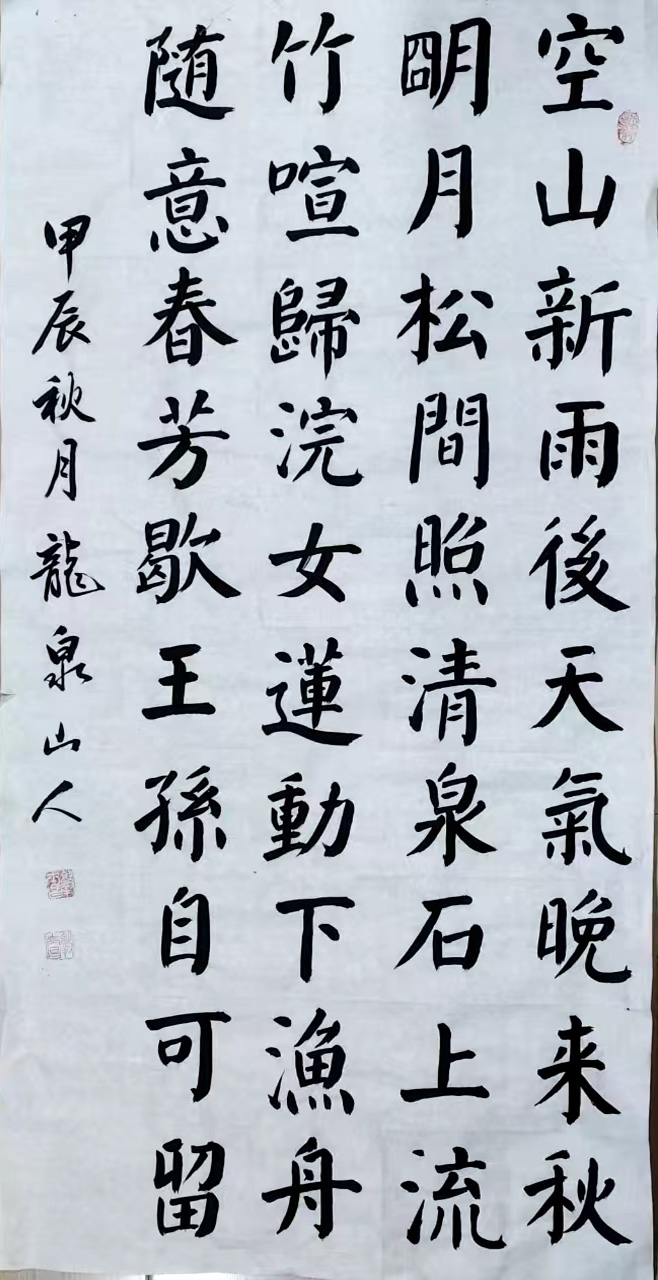 空山新雨後天氣晚来秋
明月松間照清泉石上流
竹喧歸浣女蓮動下漁舟
随意春芳歇王孫自可留
甲辰秋月龍泉山人